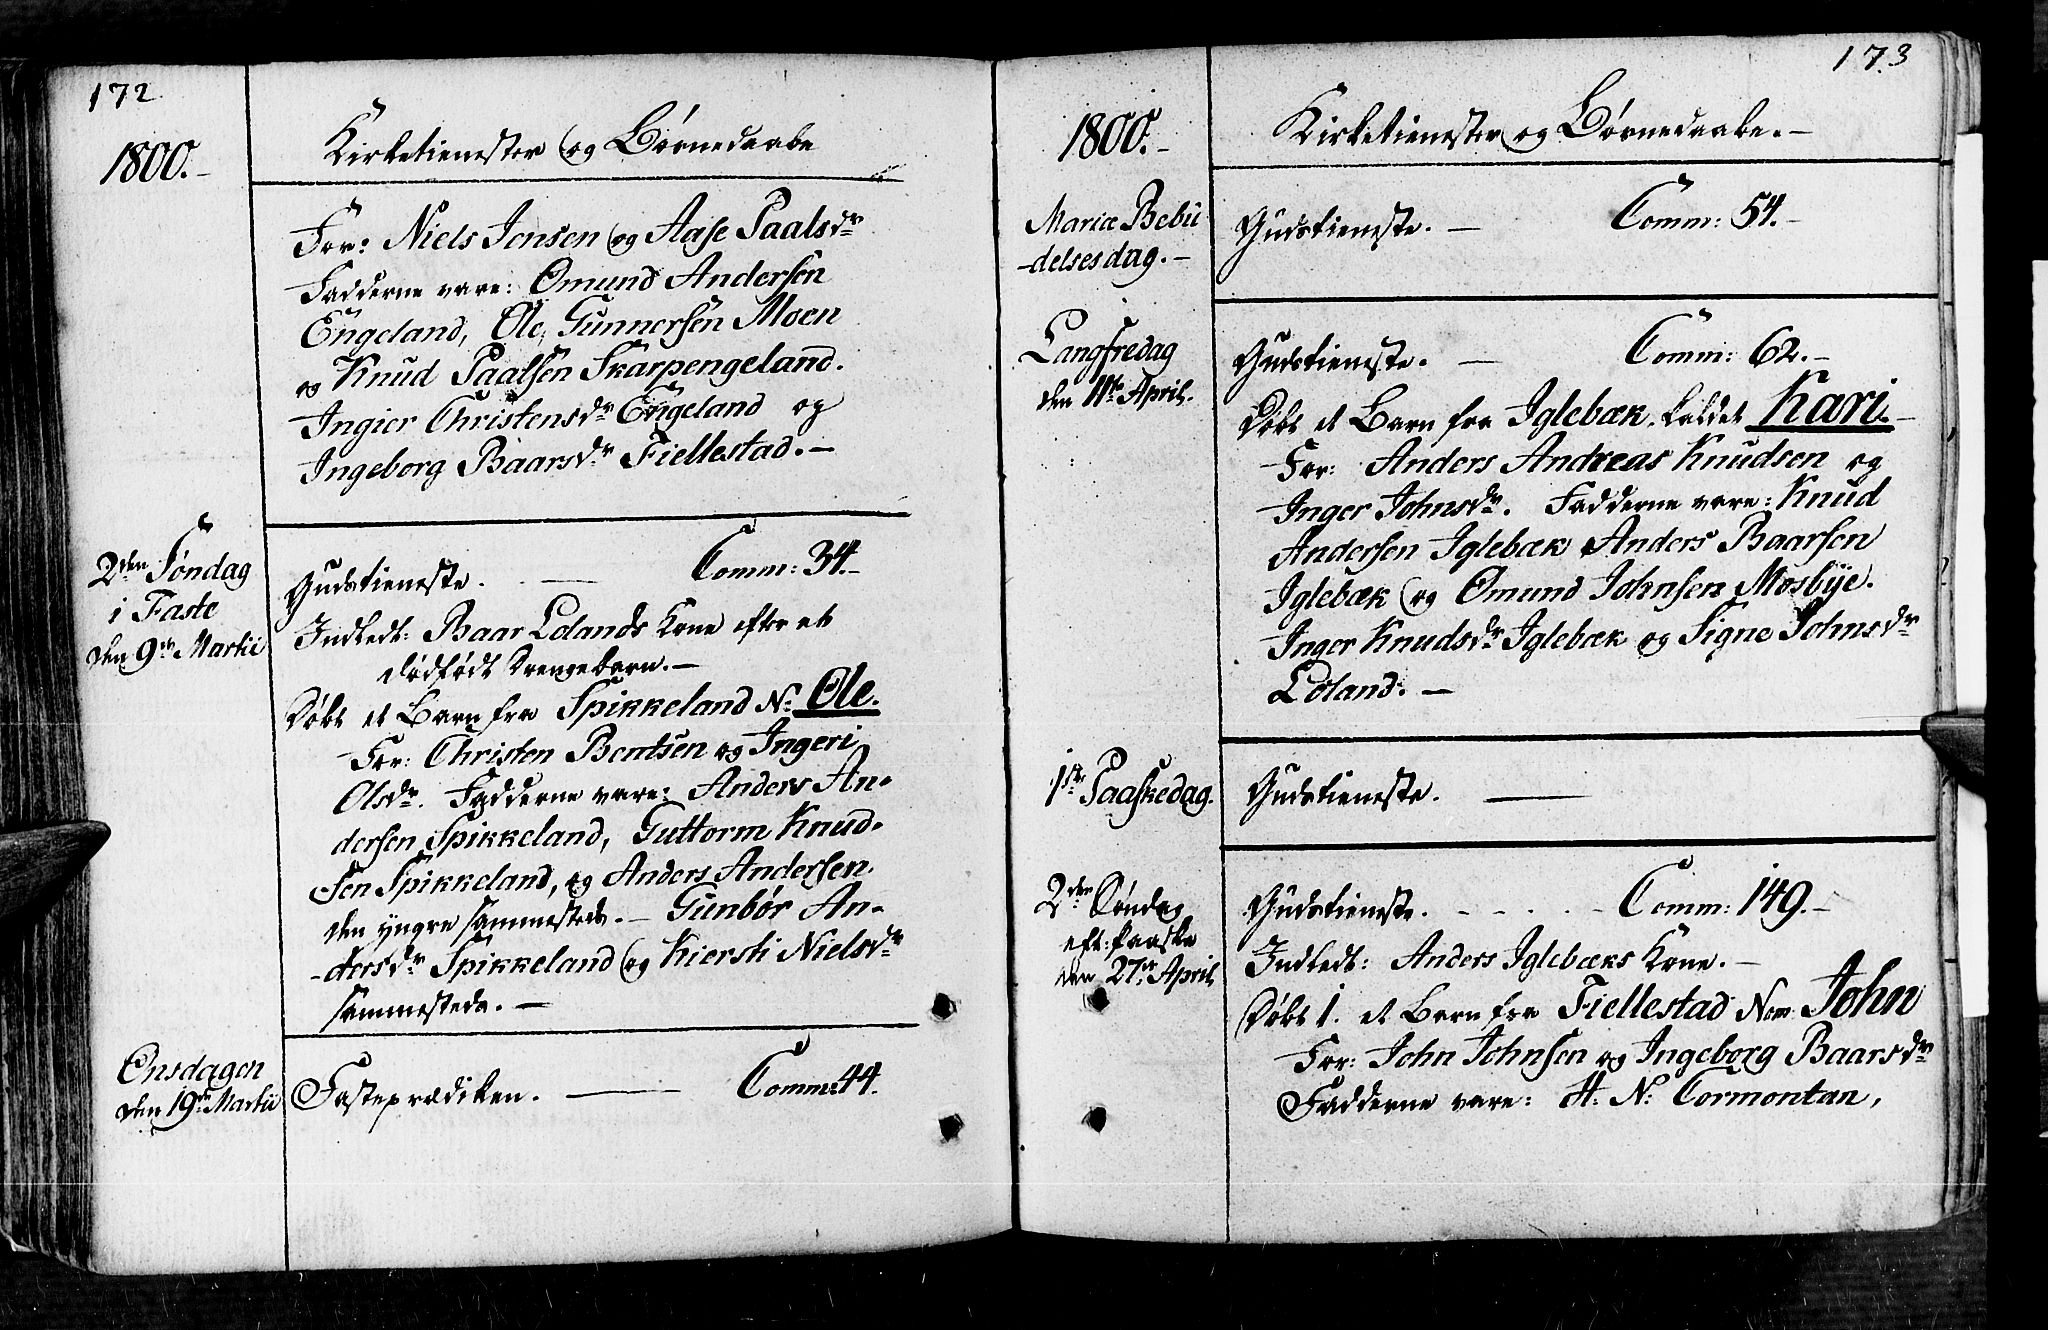 172
1800.-
Kirketienester og Børnedaabe
For: Niels Jensen og Aase Paalsdr
Fadderne vare: Omund Andersen
Engeland, Ole Gunnersen Moen
og Knud Paalsen Skarpengeland.
Ingier Christensdr Engeland og
Ingeborg Baarsdr Fiellestad.-
2den Søndag
i Faste
den 9de Martii
Gudstieneste. - Comm: 34.-
Indledt: Baar Lolands Kone efter et
dødfødt Drengebarn.-
Døbt et Barn fra Spikkeland N: Ole.
For: Christen Bentsen og Ingeri
Olsdr. Fadderne vare: Anders An-
dersen Spikkeland, Guttorm Knud-
sen Spikkeland, og Anders Andersen
den yngre sammesteds.- Gunbør An-
-dersdr Spikkeland og Kiersti Nielsdr
sammesteds.-
Onsdagen
den 19de Martii
Fasteprædiken. - Comm: 44.
173
1800.-
Kirketienester og Børnedaabe.-
Mariæ Bebu
-delsesdag.-
Gudstieneste. - Comm: 54.-
Langfredag
den 11te April.
Gudstieneste. - Comm: 62.-
Døbt et Barn fra Iglebæk, kaldet Kari.-
For: Anders Andreas Knudsen og
Inger Johnsdr. Fadderne vare: Knud
Andersen Iglebæk, Anders Baarsen
Iglebæk og Omund Johnsen Mosbye.
Inger Knudsdr Iglebæk og Signe Johnsdr
Loland.-
1ste Paaskedag.
Gudstieneste. -
2den Søndag
eft: Paaske
den 27de April
Gudstieneste. - - - - Comm: 149.-
Indledt: Anders Iglebæks Kone.-
Døbt 1. et Barn fra Fiellestad Nom: John
For: John Johnsen og Ingeborg Baarsdr
Fadderne vare: H: N: Cormontan,